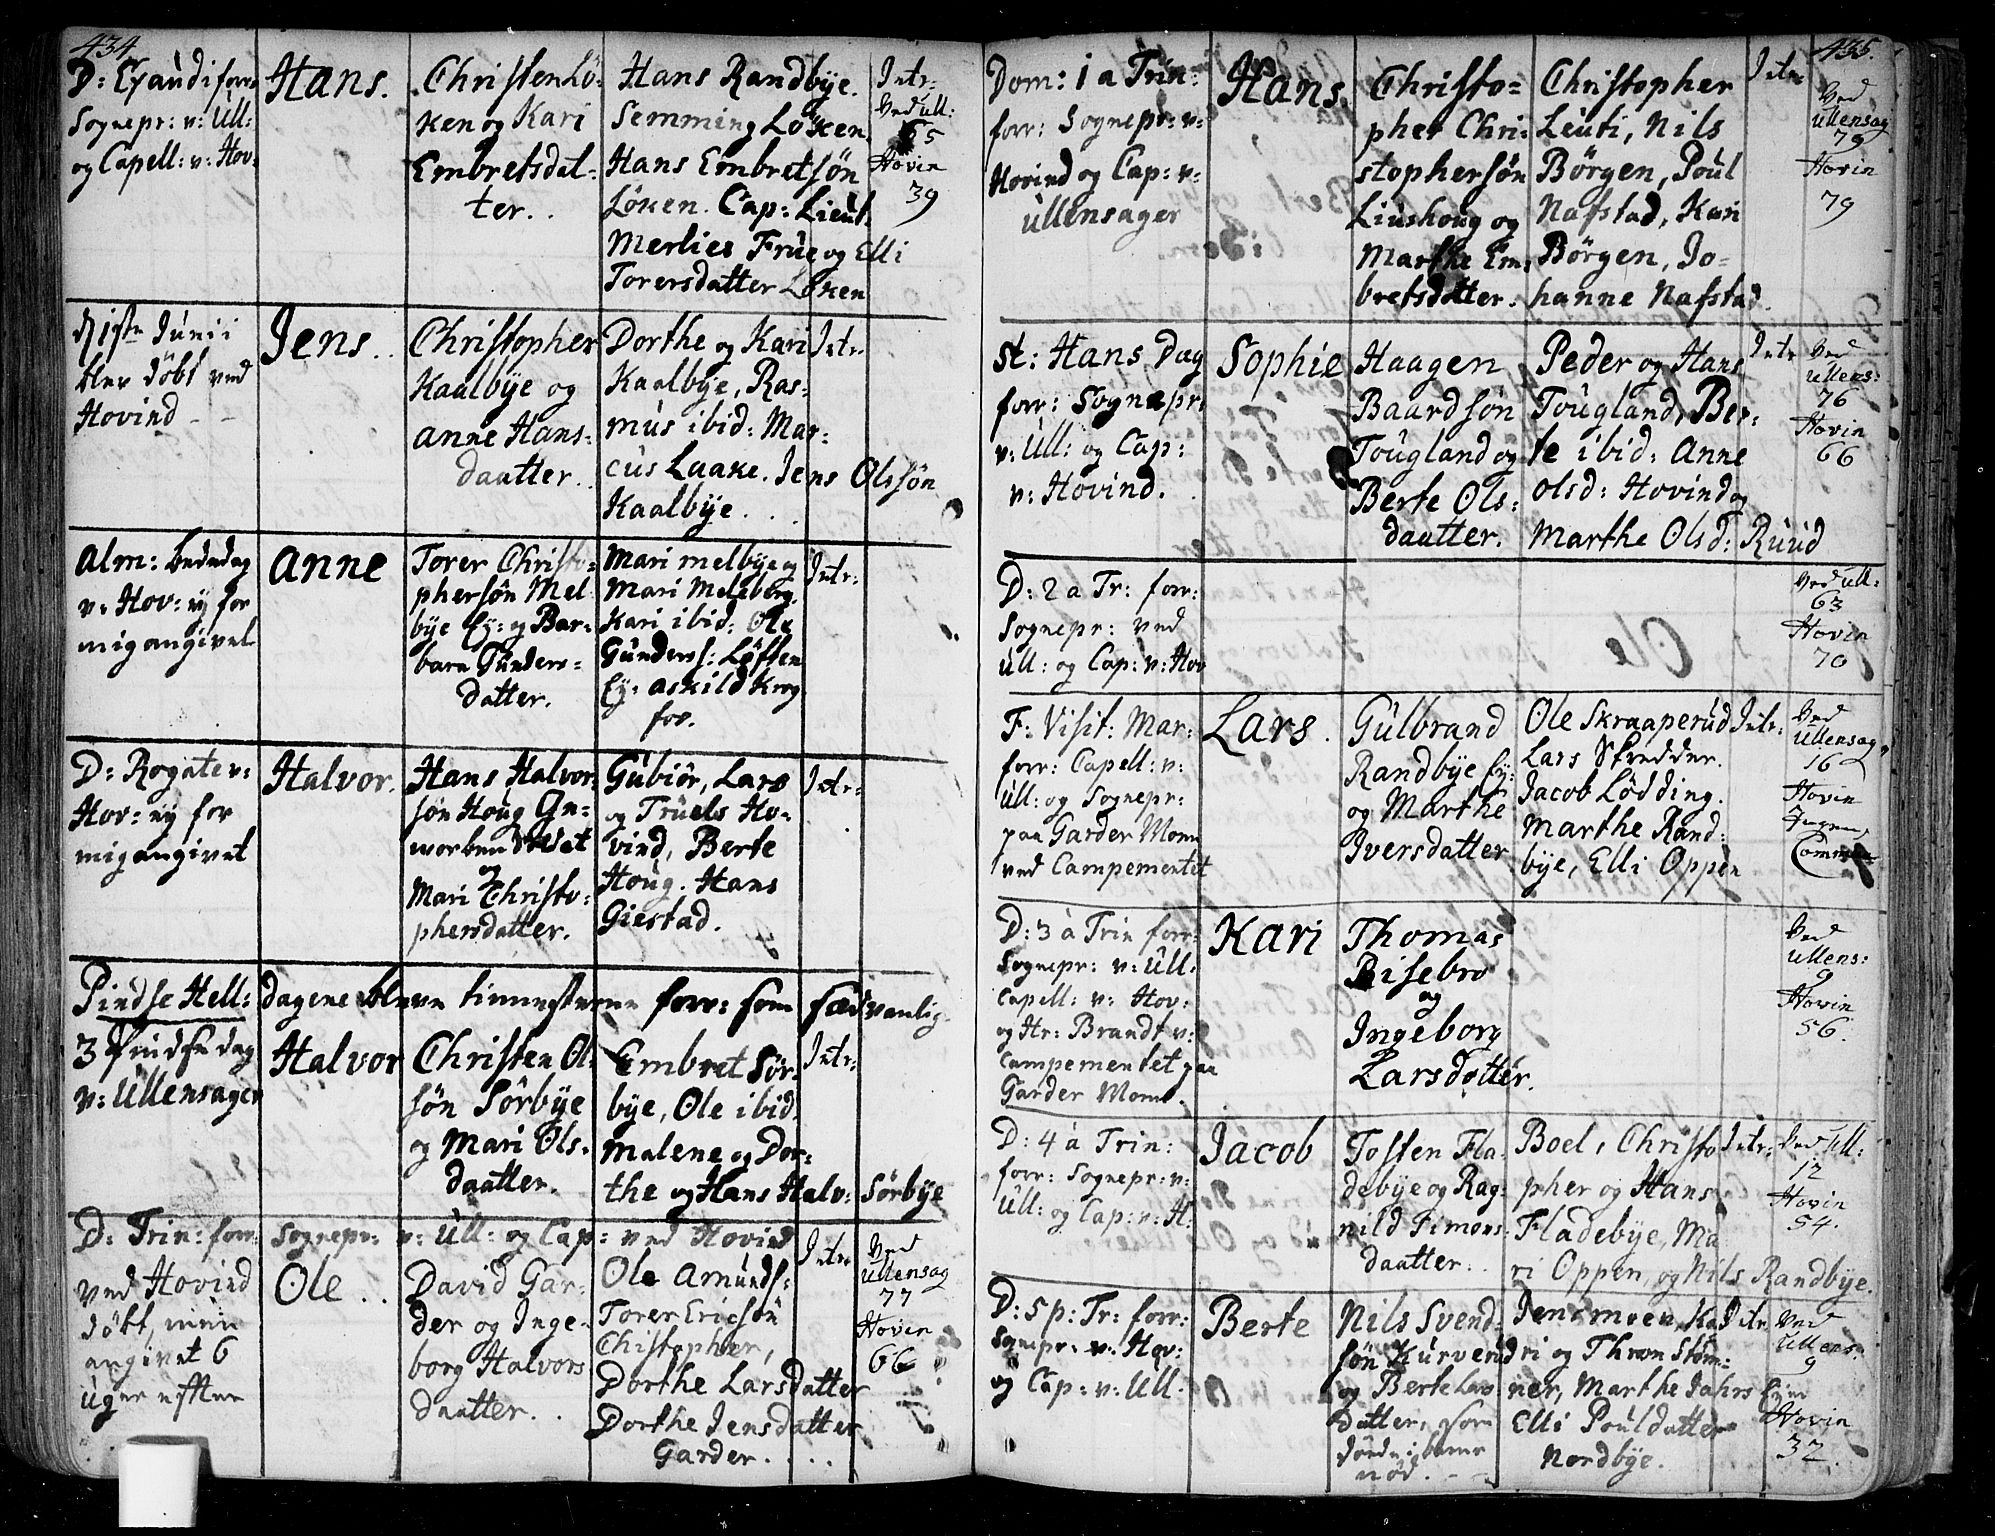 434
D: Exaudi forr:
Sognepr: v: Ull:
og Capell: v: Hov:
Hans.
Christen Lö-
ken og Kari
Embretsdat-
ter.
Hans Randbÿe.
Semming Löken
Hans Embretsön
Löken. Cap: Lieut:
Merlies Frue og Elli
Torersdatter Löken
Intr:
Ved Ull:
65
Hovin
39
Junii
blev döbt ved
Hovind
Jens.
Christopher
Kaalbÿe og
Anne Hans-
daatter.
Dorthe og Kari
Kaalbÿe, Ras-
mus ibid: Mar-
cus Laake. Jens Olssön
Kaalbÿe.
Intr.
Alm: bededag
v: Hov: ej for
mig angivet
Anne
Torer Christo-
phersön Mel
bÿe Ej: og Bar-
bara Gunders-
datter.
Mari Melbÿe og
Mari Meleborg.
Kari ibid: Ole
Gunders: Löften
Ej: Askild Krog
for.
Intr:
D: Rogate v:
Hov: ej for
mig angivet
Halvor.
Hans Halvor-
sön Houg Ge-
worben Soldat
og
Mari Christo-
phersdatter.
Gubiör, Lars
og Truels Ho-
vind, Berte
Houg. Hans
Giestad.
Intr:
Pindse Hell: dagene bleve tienesterne forr: som sædvanlig.
3 Pindse dag
v: Ullensager
Halvor
Christen Ol-
sön Sörbÿe
og Mari Ols-
daatter.
Embret Sör-
bÿe, Ole ibid
Malene og Dor-
the og Hans Halv: Sörbÿe
Intr:
D: Trin: forr: Sognepr: v: Ull: og Cap: ved Hovind
ved Hovind
döbt, men
angivet 6
uger efter
Ole
David Gar-
der og Inge-
borg Halvors
daatter.
Ole Amunds:
Torer Ericsön
Christopher,
Dorthe Larsdatter
Dorthe Jensdatter
Garder.
Intr.
Ved
Ullensag
77
Hovin
66
435.
Dom: 1 a Trin:
forr: Sognepr: v:
Hovind og Cap: v:
Ullensager
Hans.
Christo-
pher Chri-
stophersön
Liushoug og
Marthe Em-
bretsdatter.
Christopher
Leuti, Nils
Börgen, Poul
Nafstad, Kari
Börgen, Jo-
hanne Nafstad.
Intr
Ved
Ullensag
79
Hovin
79
St: Hans Dag
forr: Sognepr:
v: Ull: og Cap:
v: Hovind.
Sophie
Haagen
Baardsön
Tougland og
Berte Ols-
daatter.
Peder og Hans
Tougland, Ber-
te ibid: Anne
Olsd: Hovind og
Marthe Olsd: Ruud
Intr
Ved
Ullens:
76
Hovin
66
D: 2 a Tr: forr:
Sognepr: ved
Ull: og Cap: v: Hov
Ved Ull:
63
Hovin
70
F: Visit: Mar:
forr: Capell: v:
Ull: og Sognepr:
paa Garder Moen
ved Campementet
Lars.
Gulbrand
Randbÿe Ej:
og Marthe
Iversdatter
Ole Skraaperud
Lars Skredder.
Jacob Lödding.
Marthe Rand-
bÿe, Elli Oppen
Intr:
Ved
Ullensag
16
Hovin
Ingen
D: 3 à Trin forr:
Sognepr: v: Ull:
Capell: v: Hov:
og Hr: Brandt v:
Campementet paa
Garder Moen.
Kari
Thomas
Risebro
og
Ingeborg
Larsdatter.
Ved
Ullens:
9
Hovin
56.
D: 4 à Trin:
forr: Sognepr: v:
Ull: og Cap: v: H.
Jacob
Tosten Fla-
debÿe og Rag-
nild Simons-
daatter.
Boel, Christo
pher og Hans
Fladebÿe, Ma
ri Oppen, og Nils Randbÿe.
Intr:
Ved Ull:
12
Hovin
54.
D: 5 p: Tr: forr:
Sognepr: v: Hov:
og Cap: v: Ull.
Berte
Nils Svend-
sön Kurverud
og Berte Lars
datter,
nöd.
Jens Moen, Ka
ri og Thron Stöm-
ner, Marthe Jahrs Ejer
Elli Pouldatter
Nordbÿe.
Intr.
Ved
Ullens:
9
Hovin
32.